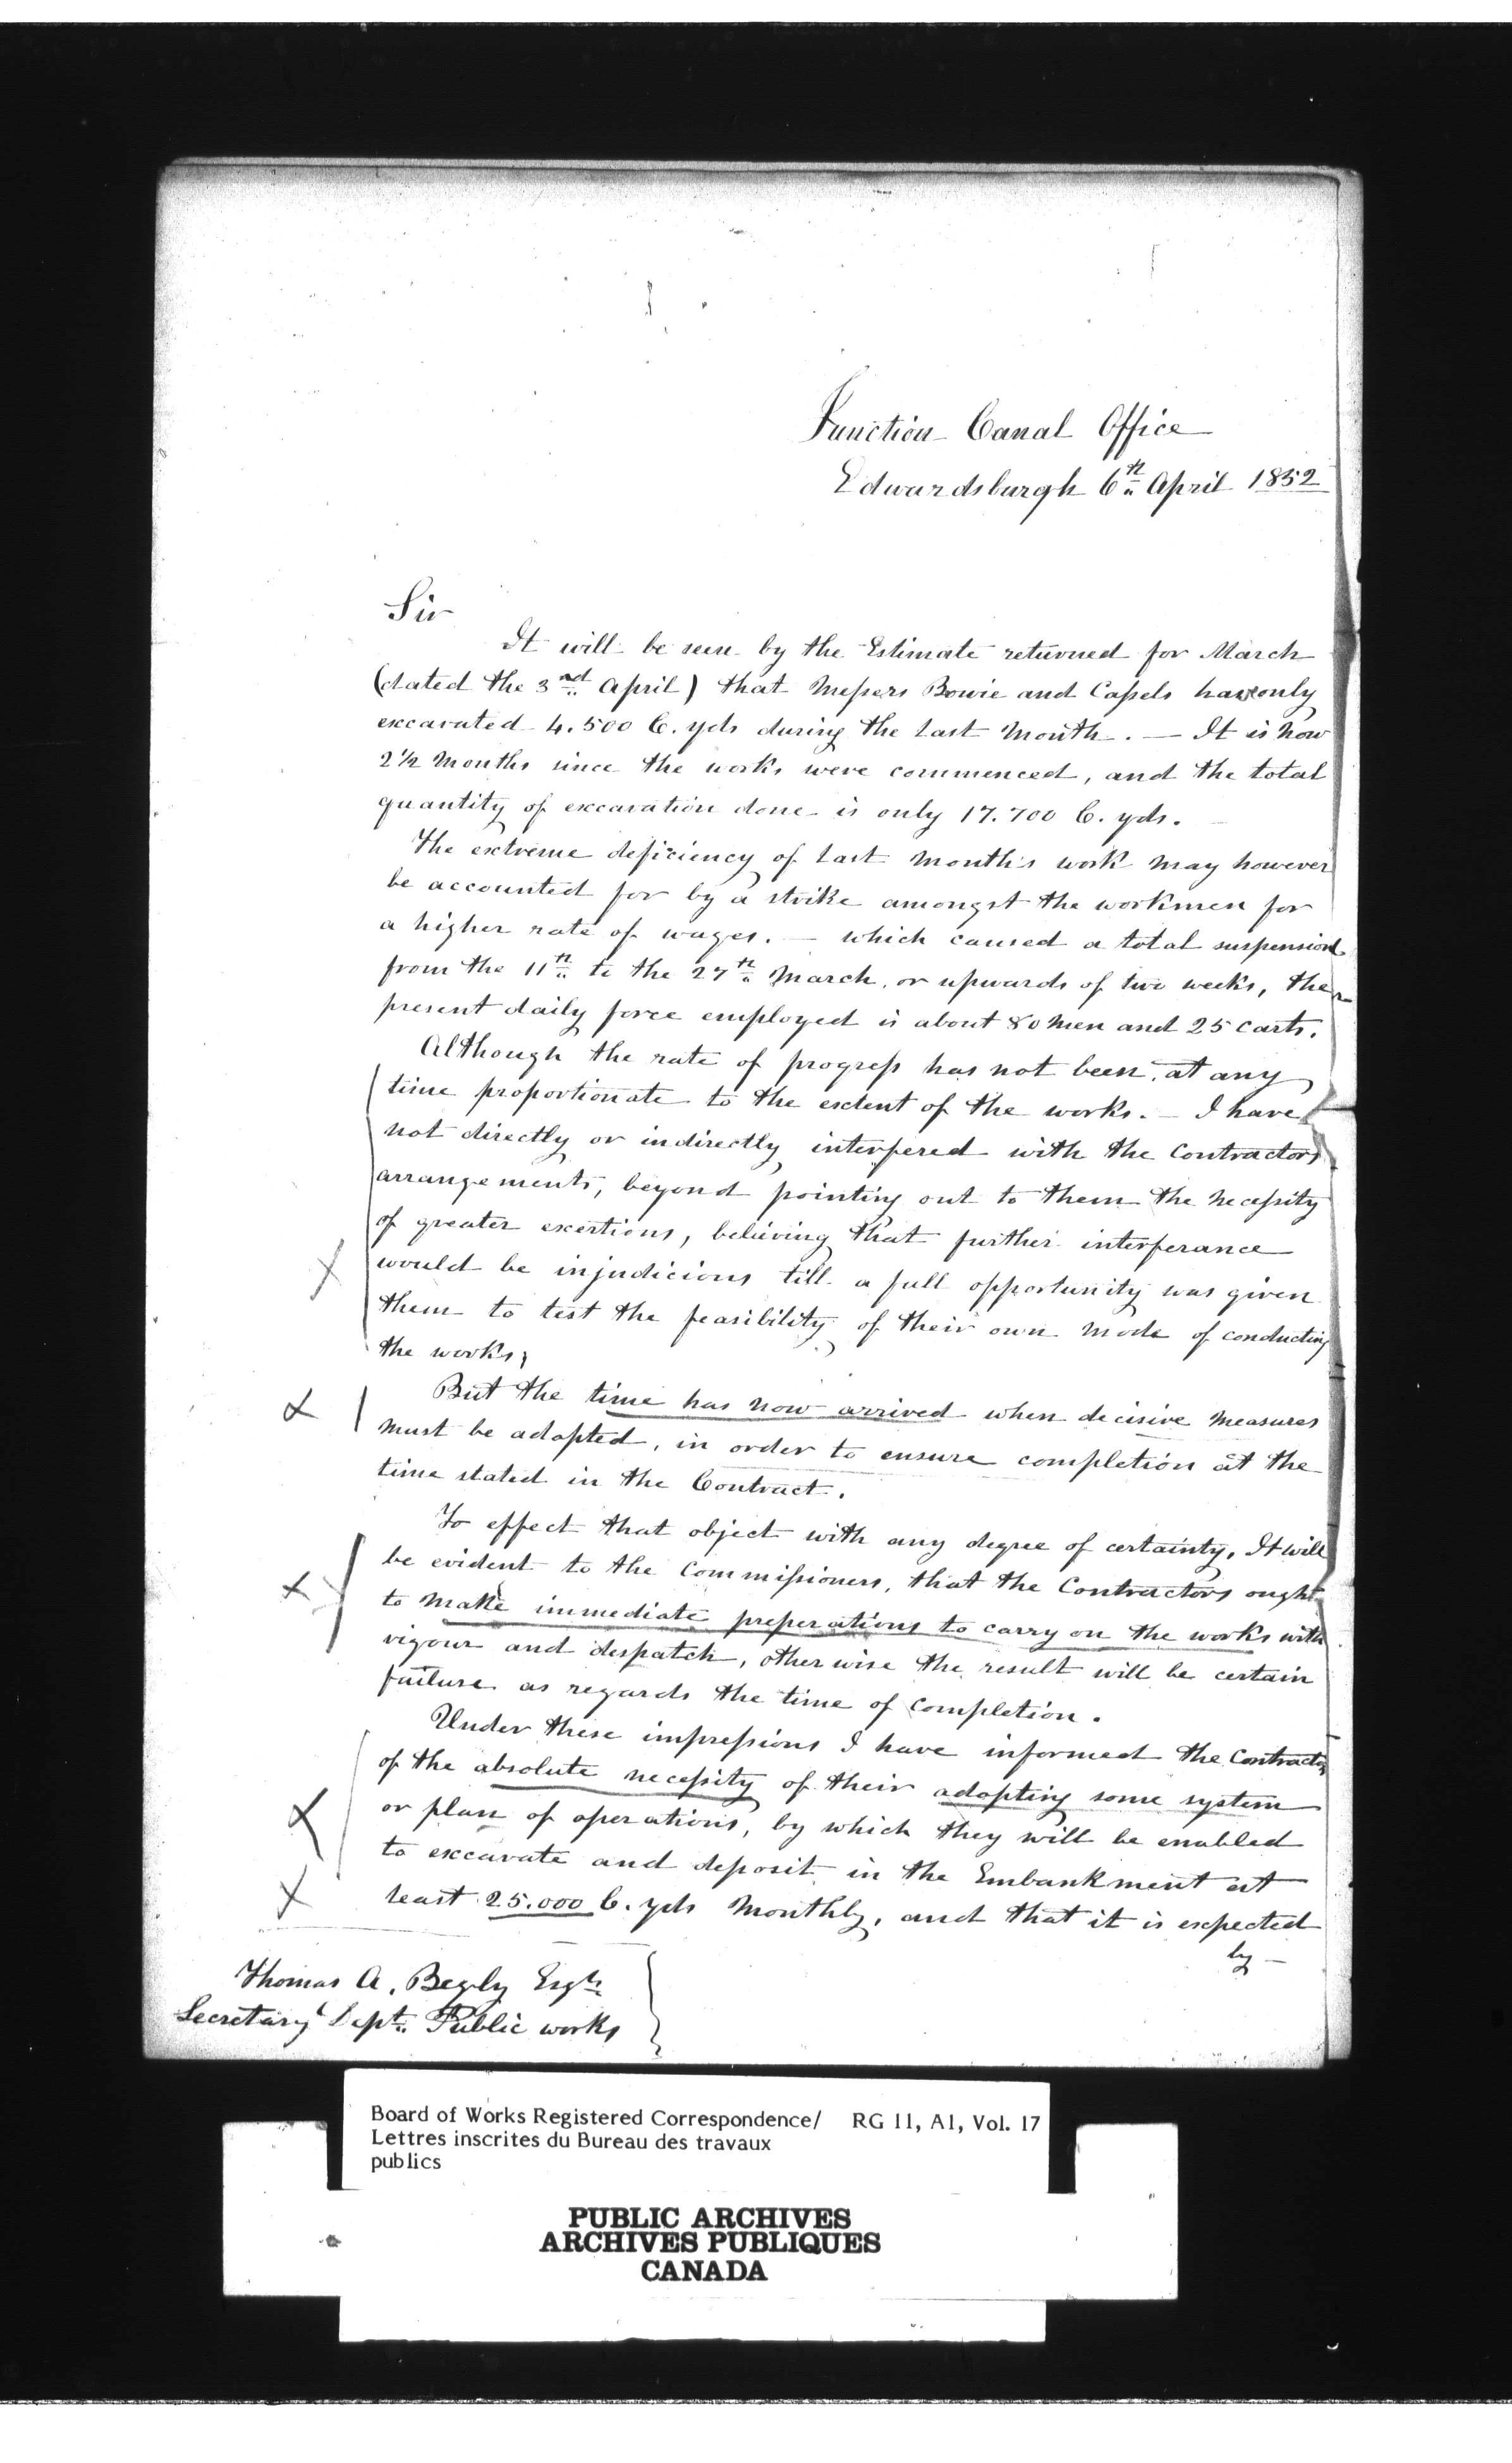 Junction Canal Office
Edwardsburgh 6th April 1852
Sir
It will be seen by the Estimate returned for March
(dated the 3rd April) that Messers Bowie and Cassels have only
excavated 4.500 C. yds during the last month. — It is now
2½ months since the works were commenced, and the total
quantity of excavation done is only 17.700 C. yds.
The extreme deficiency of last months work may however
be accounted for by a strike amongst the workmen for
a higher rate of wages. — which caused a total suspension
from the 11th to the 27th March, or upwards of two weeks, the
present daily force employed is about 80 men and 25 carts.
Although the rate of progress has not been, at any
time proportionate to the extent of the works. — I have
not directly or indirectly interfered with the Contractors
arrangements, beyond pointing out to them the necessity
of greater exertions, believing that further interferance
would be injudicious till a full opportunity was given
them to test the feasibility of their own mode of conducting
the works,
But the time has now arrived when decisive measures
must be adopted, in order to ensure completion at the
time stated in the Contract.
To effect that object with any degree of certainty, It will
be evident to the Commissioners, that the Contractors ought
to make immediate preperations to carry on the works with
vigour and despatch, other wise the result will be certain
failure as regards the time of completion.
Under these impressions I have informed the Contractors
of the absolute necessity of their adopting some system
or plan of operations, by which they will be enabled
to excavate and deposit in the Embankment at
least 25.000 C. yds monthly, and that it is expected
by —
Thomas A. Begly Esqr
Secretary Dept. Public works
Board of Works Registered Correspondence/ RG 11, A1, Vol. 17
Lettres inscrites du Bureau des travaux
publics
PUBLIC ARCHIVES
ARCHIVES PUBLIQUES
CANADA